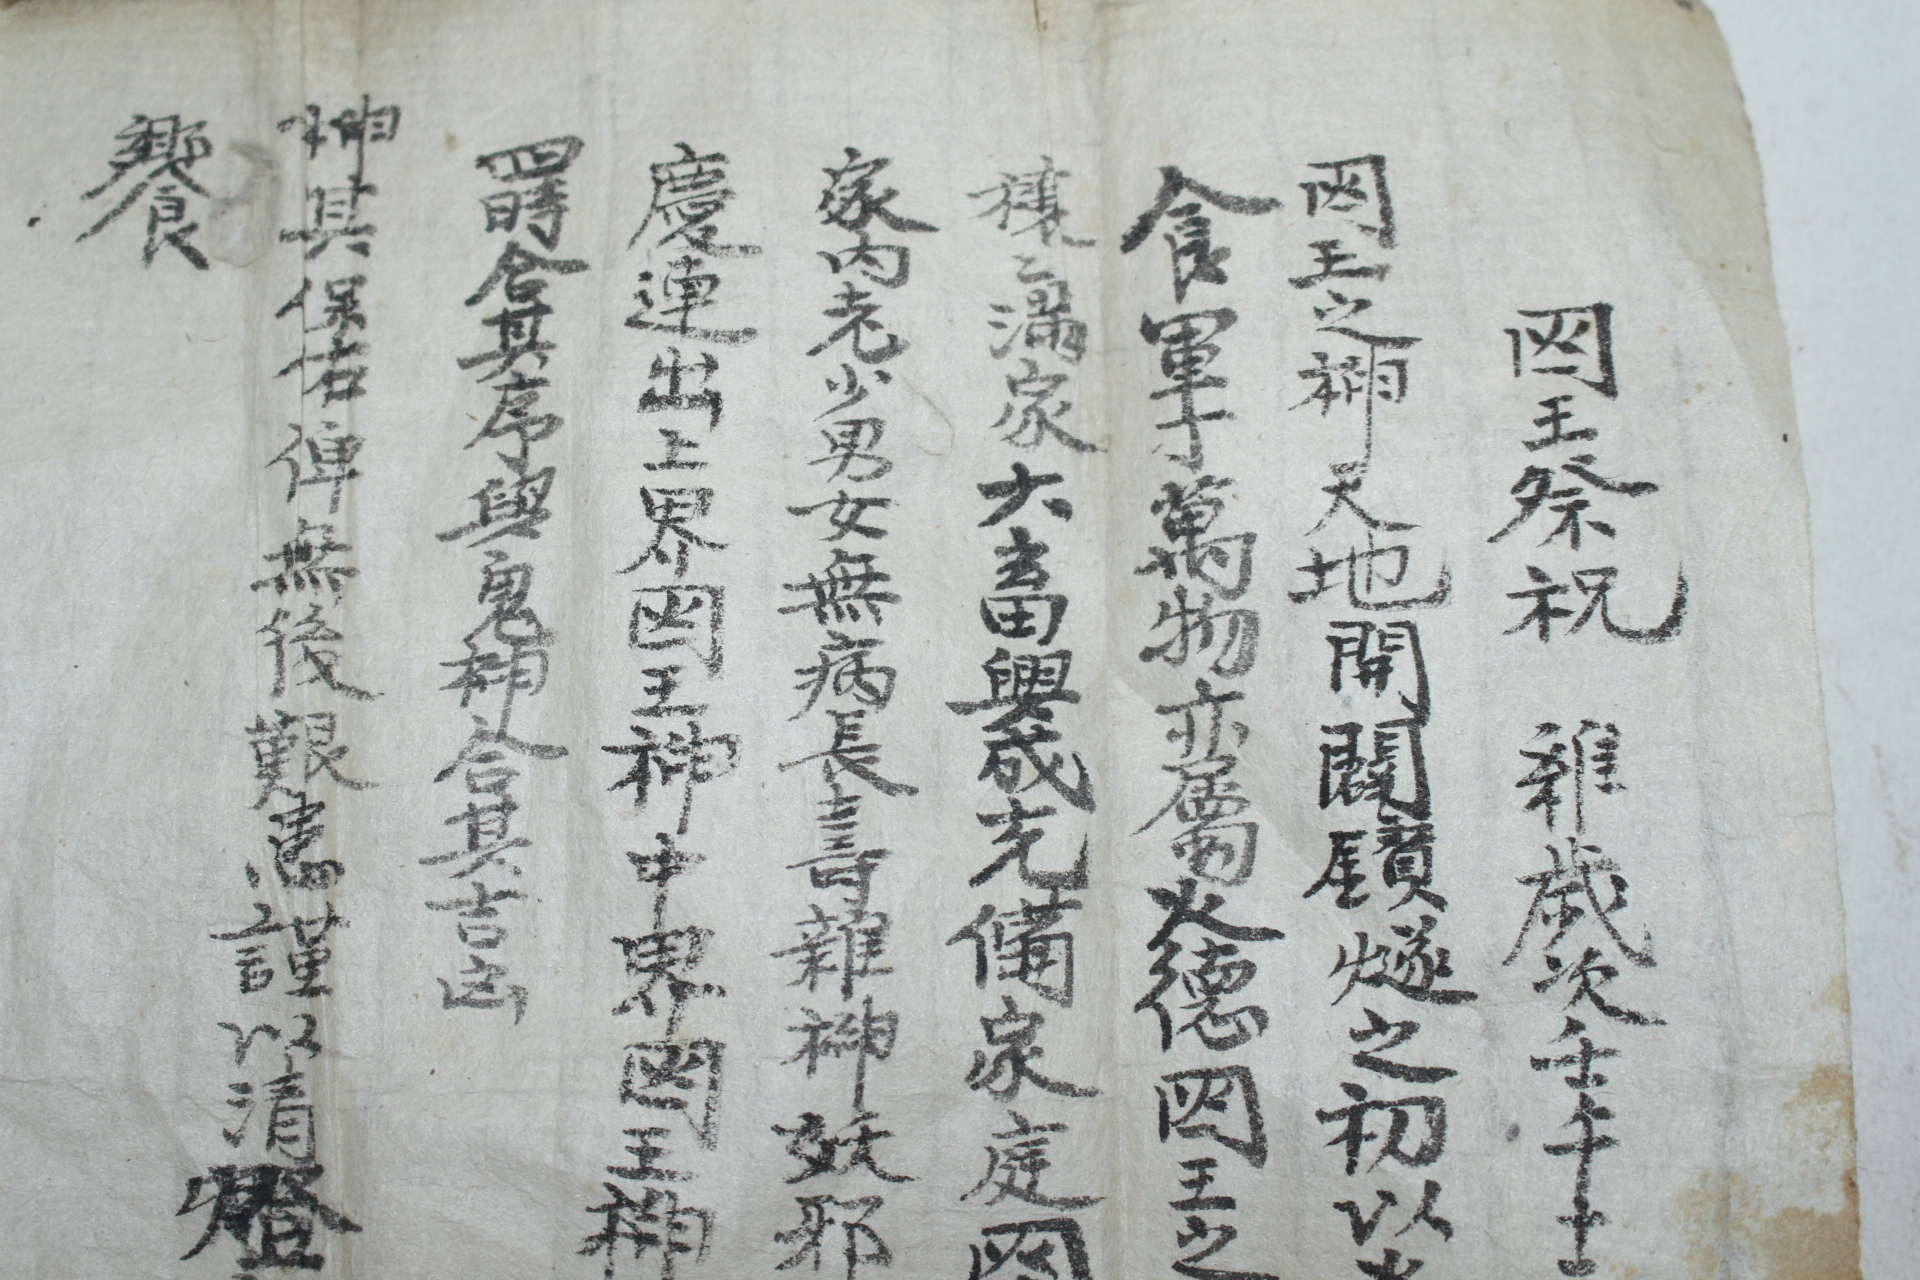 囚王祭祝 維歲次壬午
囚王之神天地開闢鑽燧之初以
食軍于萬物亦屬火德囚王之
穰〻滿家六畜興成充備家庭囚
家內老少男女無病長壽雜神妖邪
慶連出上界囚王神中界囚王神
四時合其序與鬼神合其吉凶
神其保佑俾無後艱焉謹以清燈
饗